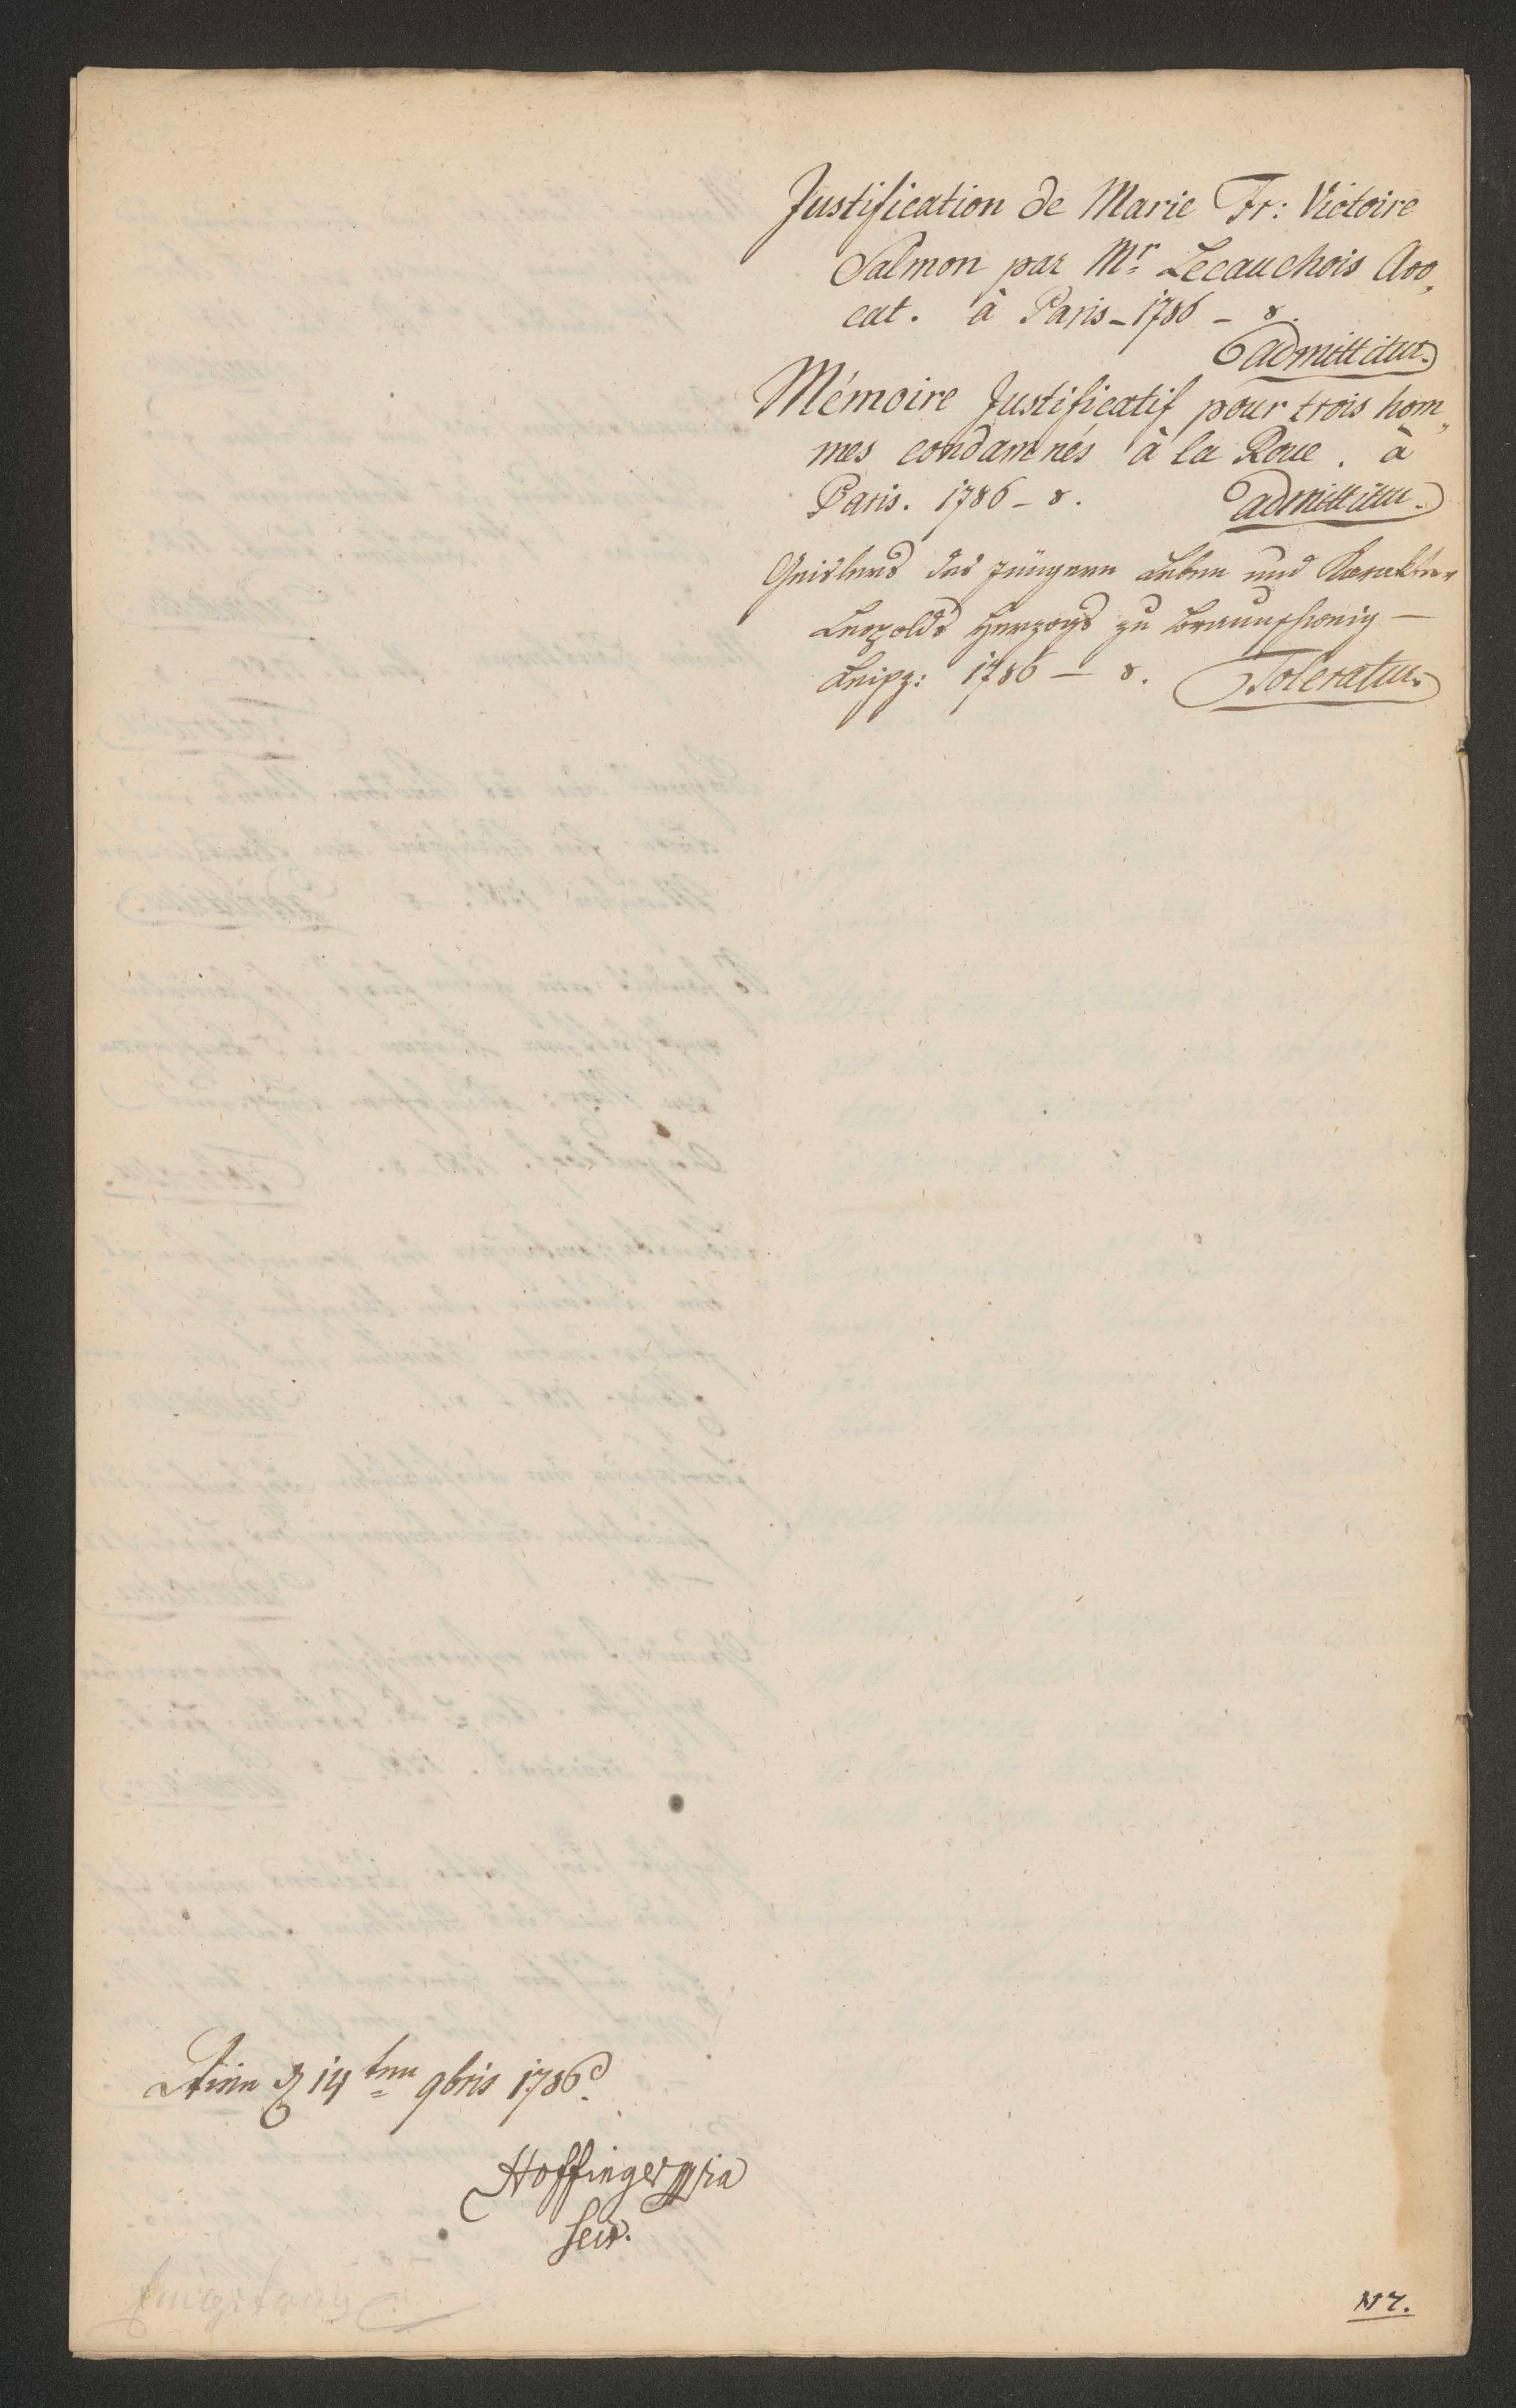 Justification de Marie Fr: Victoire
Salmon par Mr Lecauchois Avo,,
cat. à Paris - 1786 - 8.
admittitur.
Mémoire Justificatif pour trois hom,,
mes condamnés à la Roue. à
Paris. 1786 - 8. admittitur.
Geislers des jüngern Leben und Karakter
Leopolds Herzogs zu Braunschweig —
Leipz: 1786 — 8. Toleratur.
Wien den 14ten 9bris 1786.
Hoffinger mpria
Secr.
N 7.